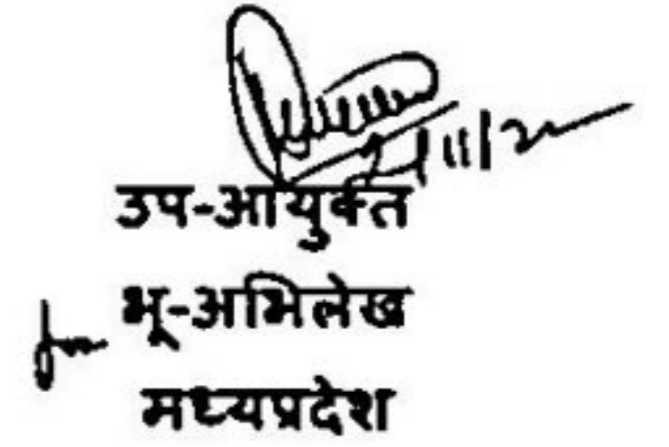 उप-आयुक्त
भू-अभिलेख
मध्यप्रदेश